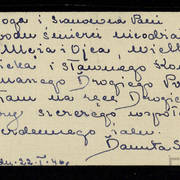 oga i Szanowna Pani
wodu śmierci nieodża
Męża i Ojca, Wielk
icka i sławnego Ko
manego Drogiego P
łam na ręce Drogie
ny szczerego współ
erdecznego żalu.
Danuta S
dn. 22.I.46.